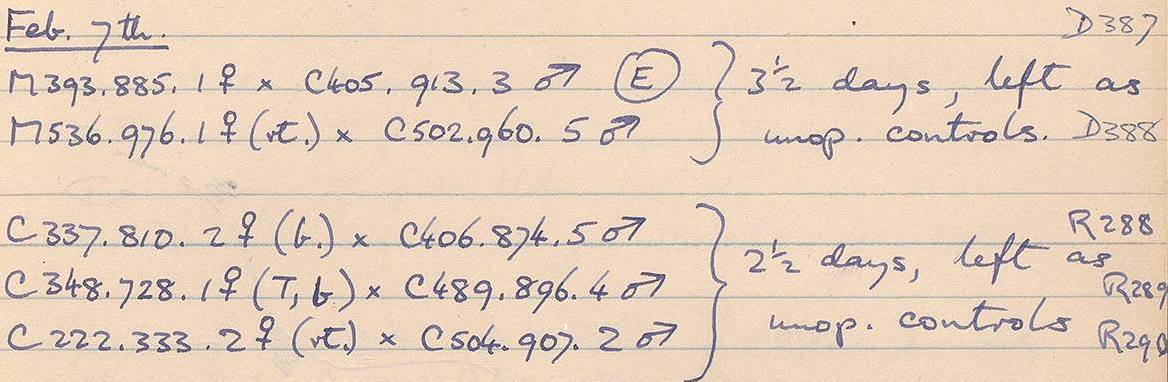 Feb. 7th. D387
M393.885.1♀ × C405.913.3♂ (E) } 3½ days, left as
M536.976.1♀ (rt.) × C502.960.5♂ unop. controls. D388
C337.810.2♀ (b.) × C406.874.5♂ R288
C348.728.1♀ (T, b.) × C489.896.4♂ } 2½ days, left as R289
C222.333.2♀ (rt.) × C504.907.2♂ unop. controls R290